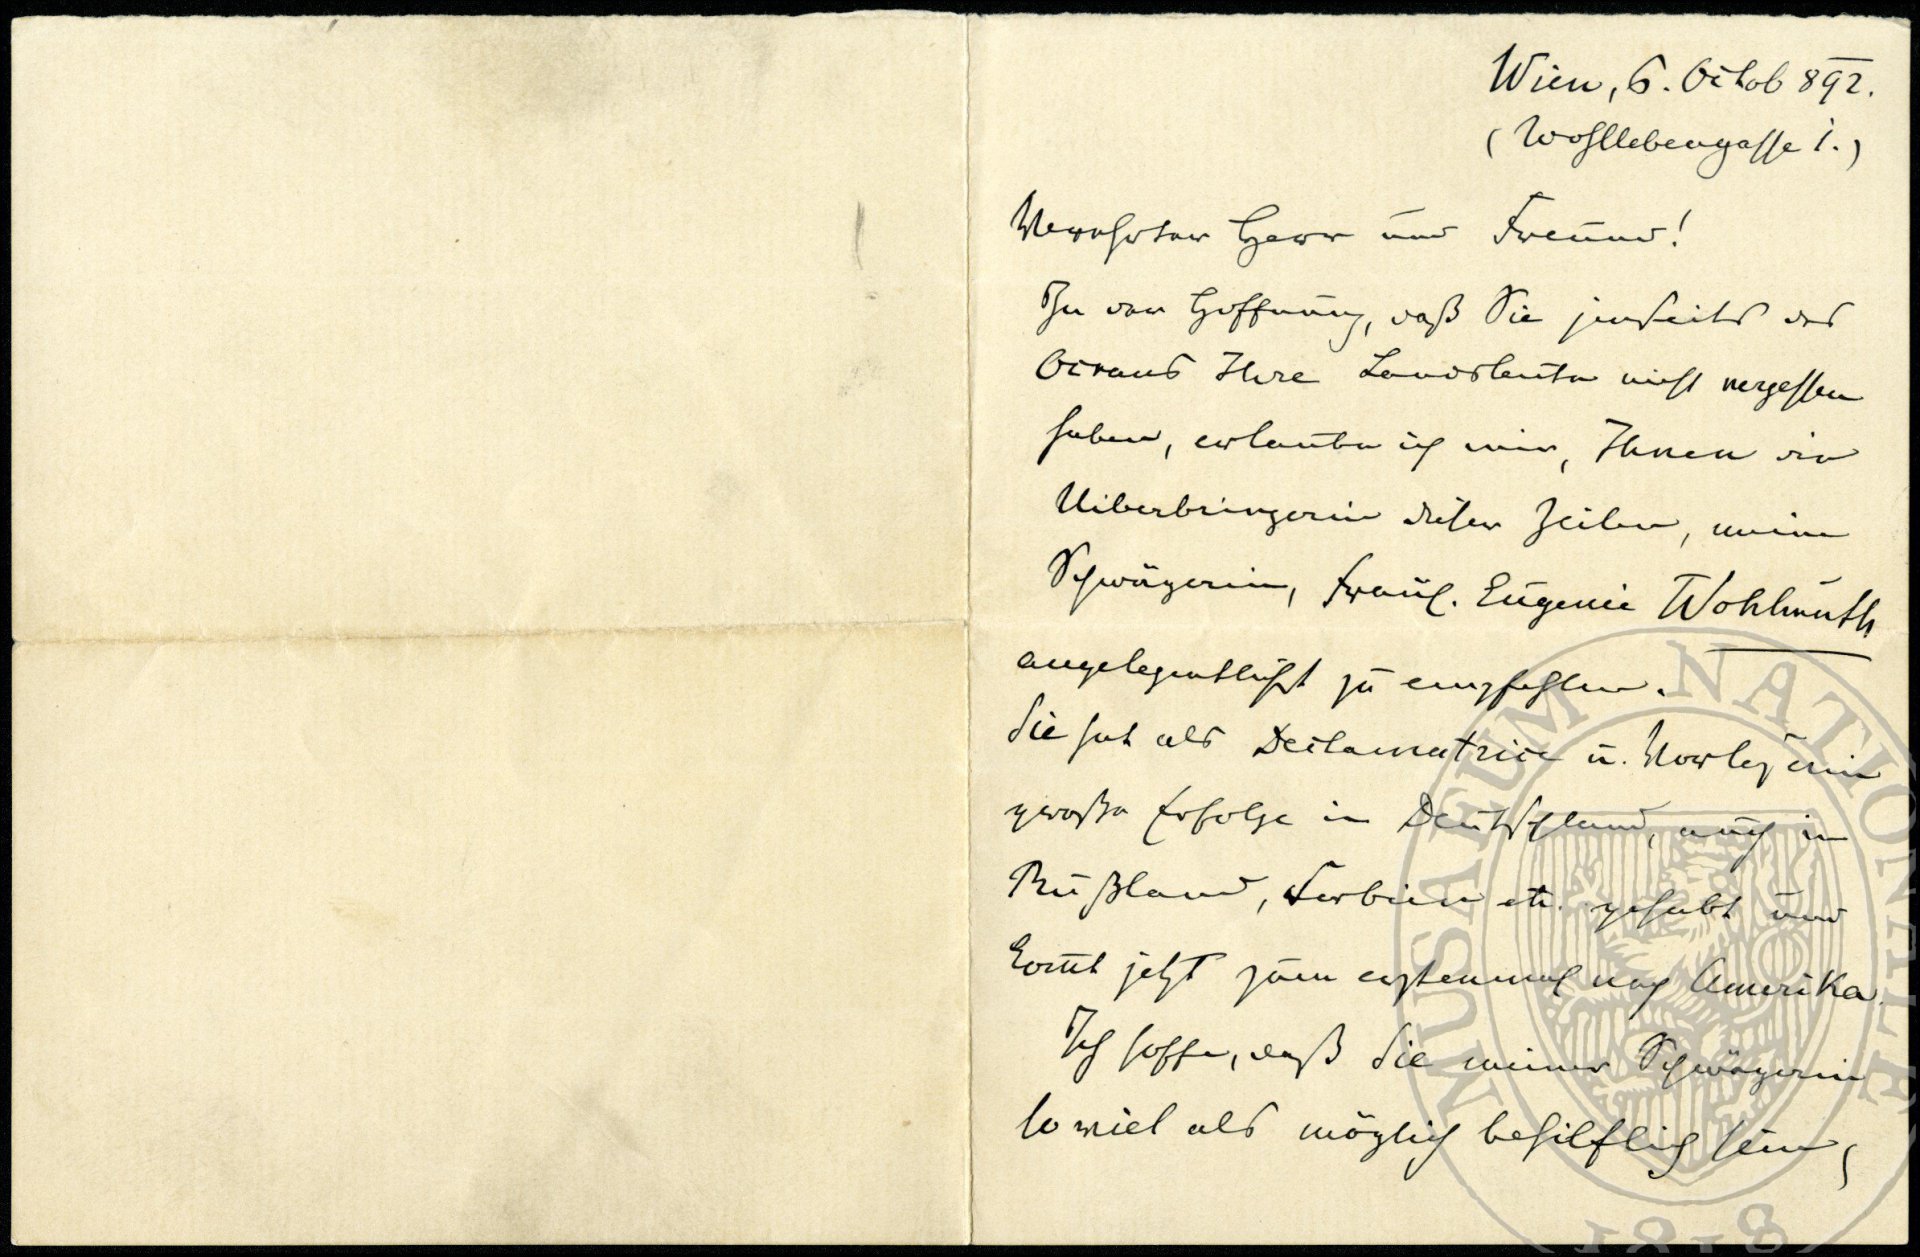 Wien, 6. Octob 892.
(Wohllebengasse 1.)
Verehrter Herr und Freund!
In der Hoffnung, daß Sie jenseits des
Oceans Ihre Landsleute nicht vergessen
haben, erlaube ich mir, Ihnen die
Uiberbringerin dieser Zeilen, meine
Schwägerin, Fräul. Eugenie Wohlmuth
angelegentlichst zu empfehlen.
Sie hat als Declamatrice u. Vorleserin
große Erfolge in Deutschland, auch in
Rußland, Serbien etc. gehabt und
kom̅t jetzt zum erstenmal nach Amerika.
Ich hoffe, daß Sie meiner Schwägerin
so viel als möglich behilflich sein,
MUSAEUM NATIONALE
1818